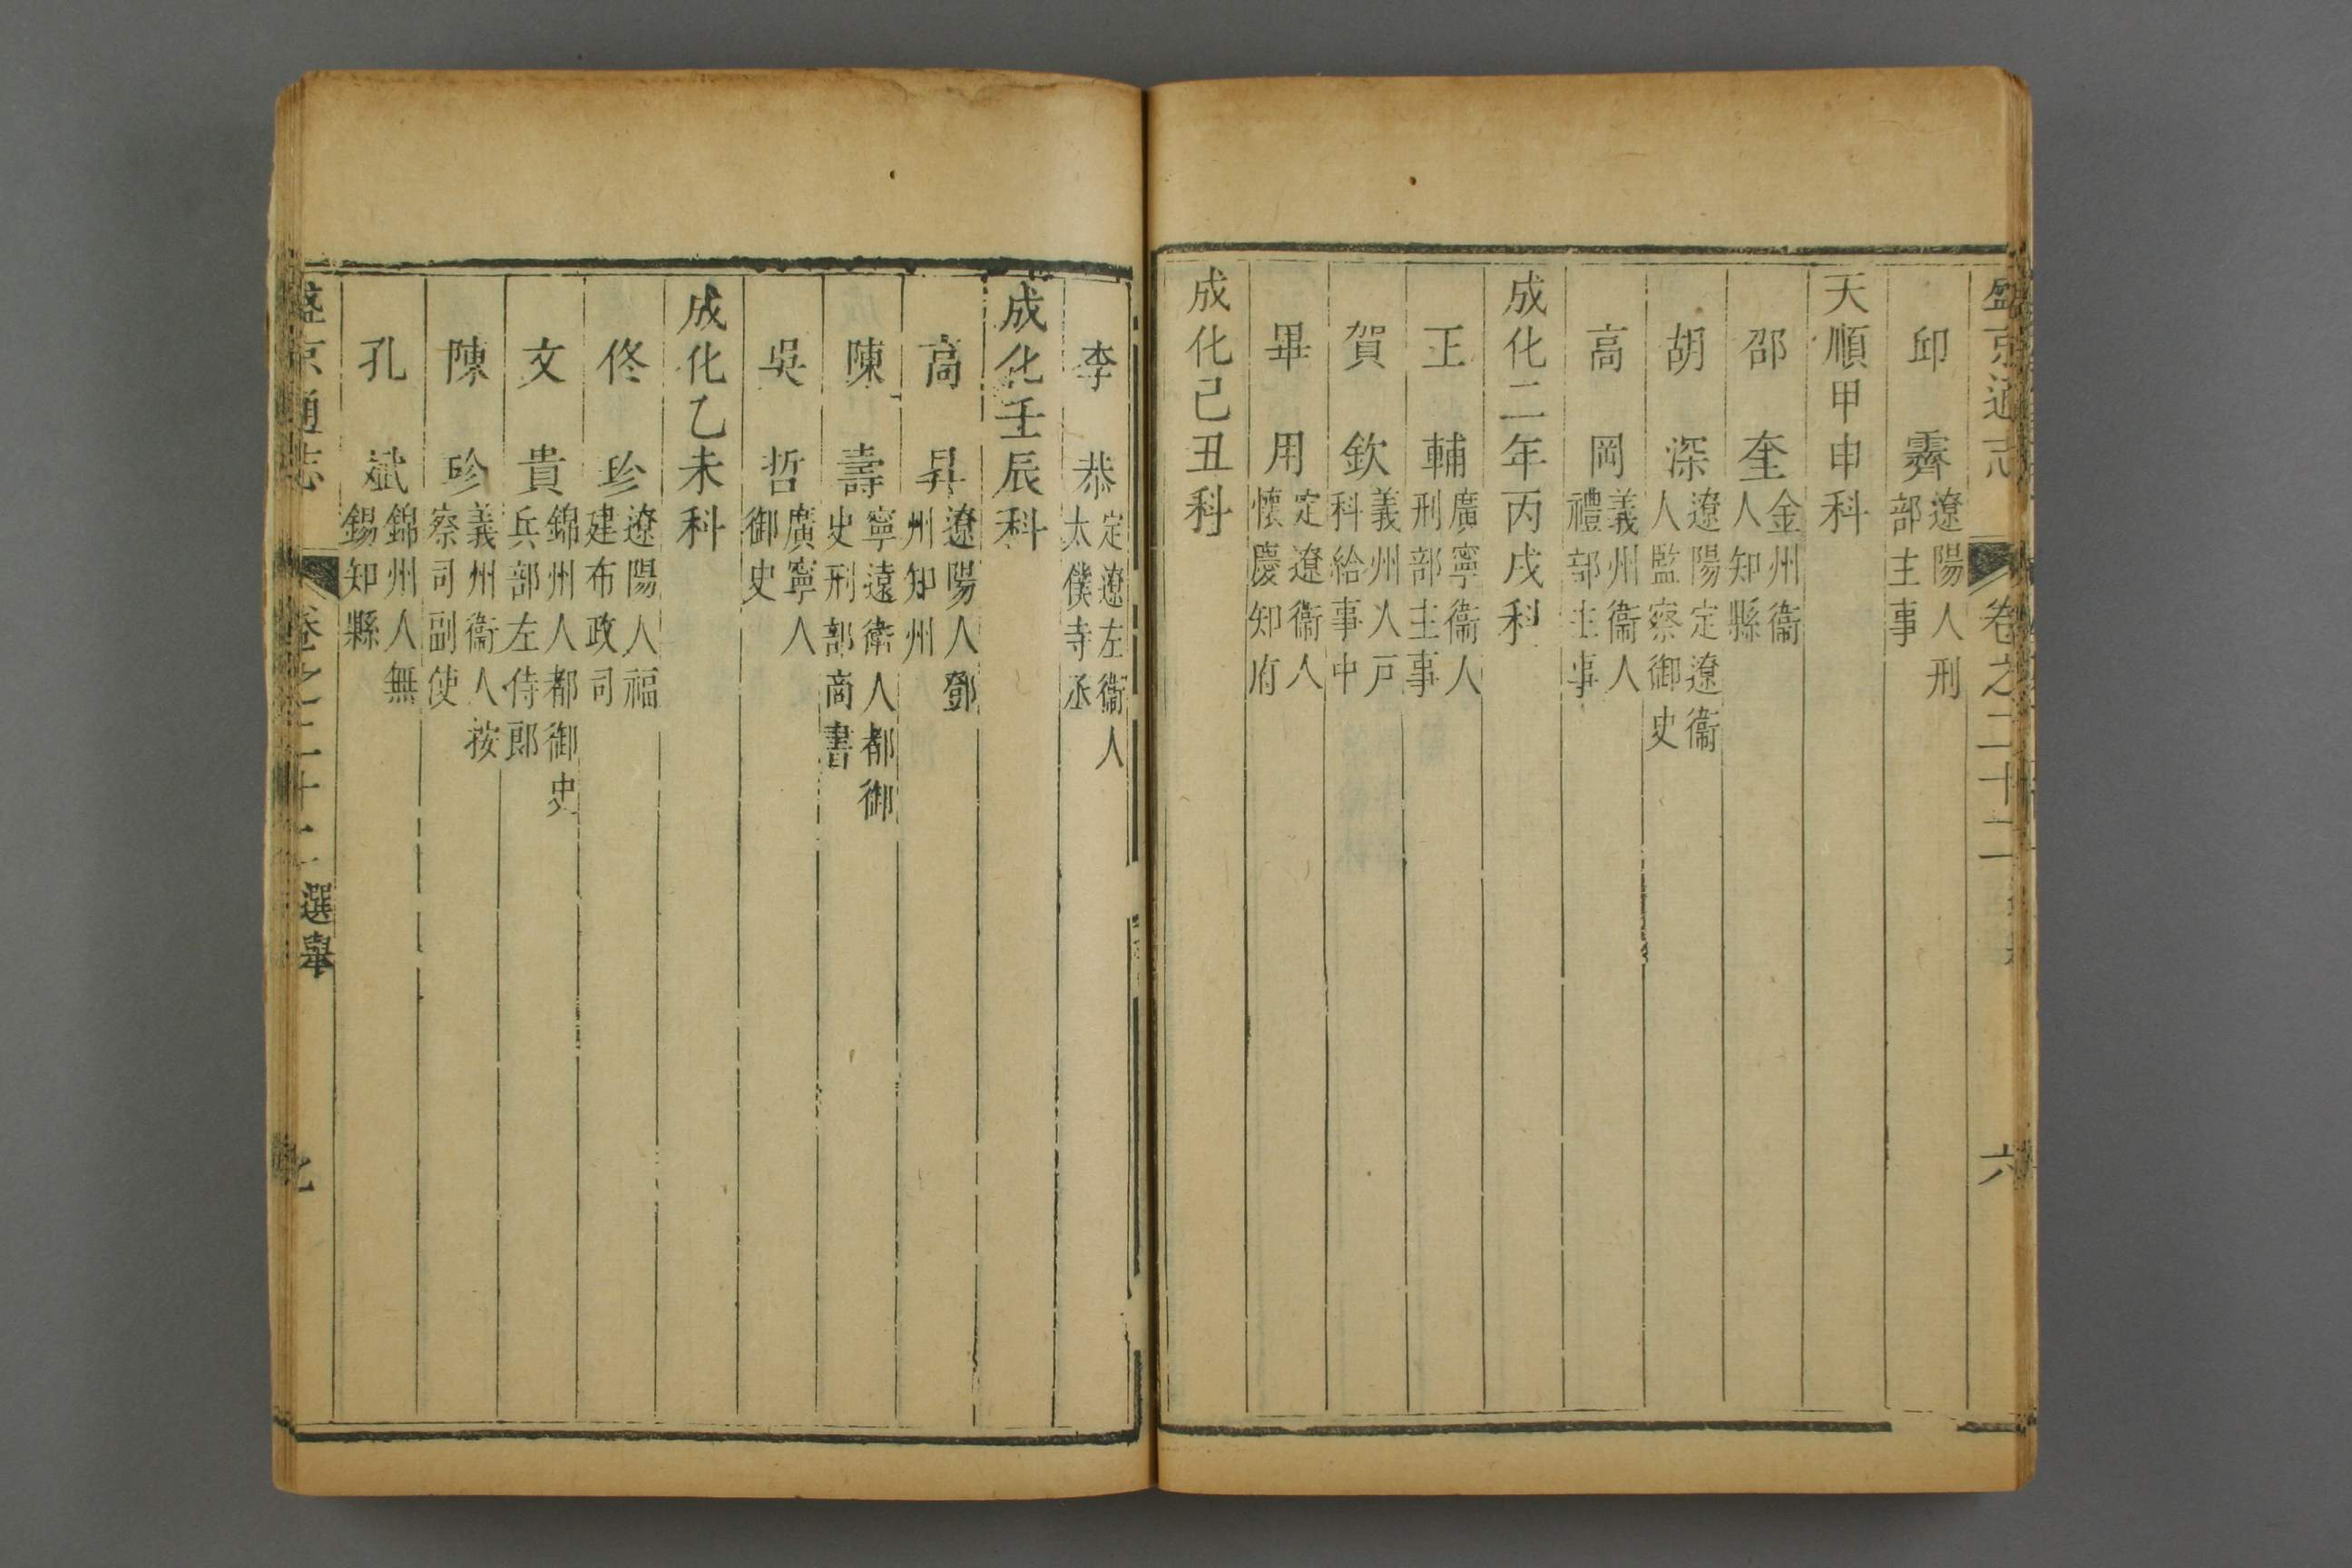 盛京通志 卷之二十二 六
邱 霽 遼陽人刑
部主事
天順甲申科
邵 奎 金州衞
人知縣
胡 深 遼陽定遼衞
人監察御史
高 岡 義州衞人
禮部主事
成化二年丙戌科
王 輔 廣寧衞人
刑部主事
賀 欽 義州人戸
科給事中
畢 用 定遼衞人
懷慶知府
成化己丑科
李 恭 定遼左衞人
太僕寺丞
成化壬辰科
高 昇 遼陽人鄧
州知州
陳 壽 寧遠衛人都御
史刑部尚書
吳 哲 廣寧人
御史
成化乙未科
佟 珍 遼陽人福
建布政司
文 貴 錦州人都御史
兵部左侍郎
陳 珍 義州衞人按
察司副使
孔 斌 錦州人無
錫知縣
盛京通志 卷之二十二 選舉